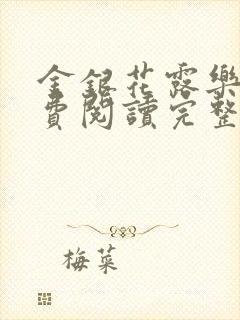 金銀花露樂
費閱讀完整
梅菜